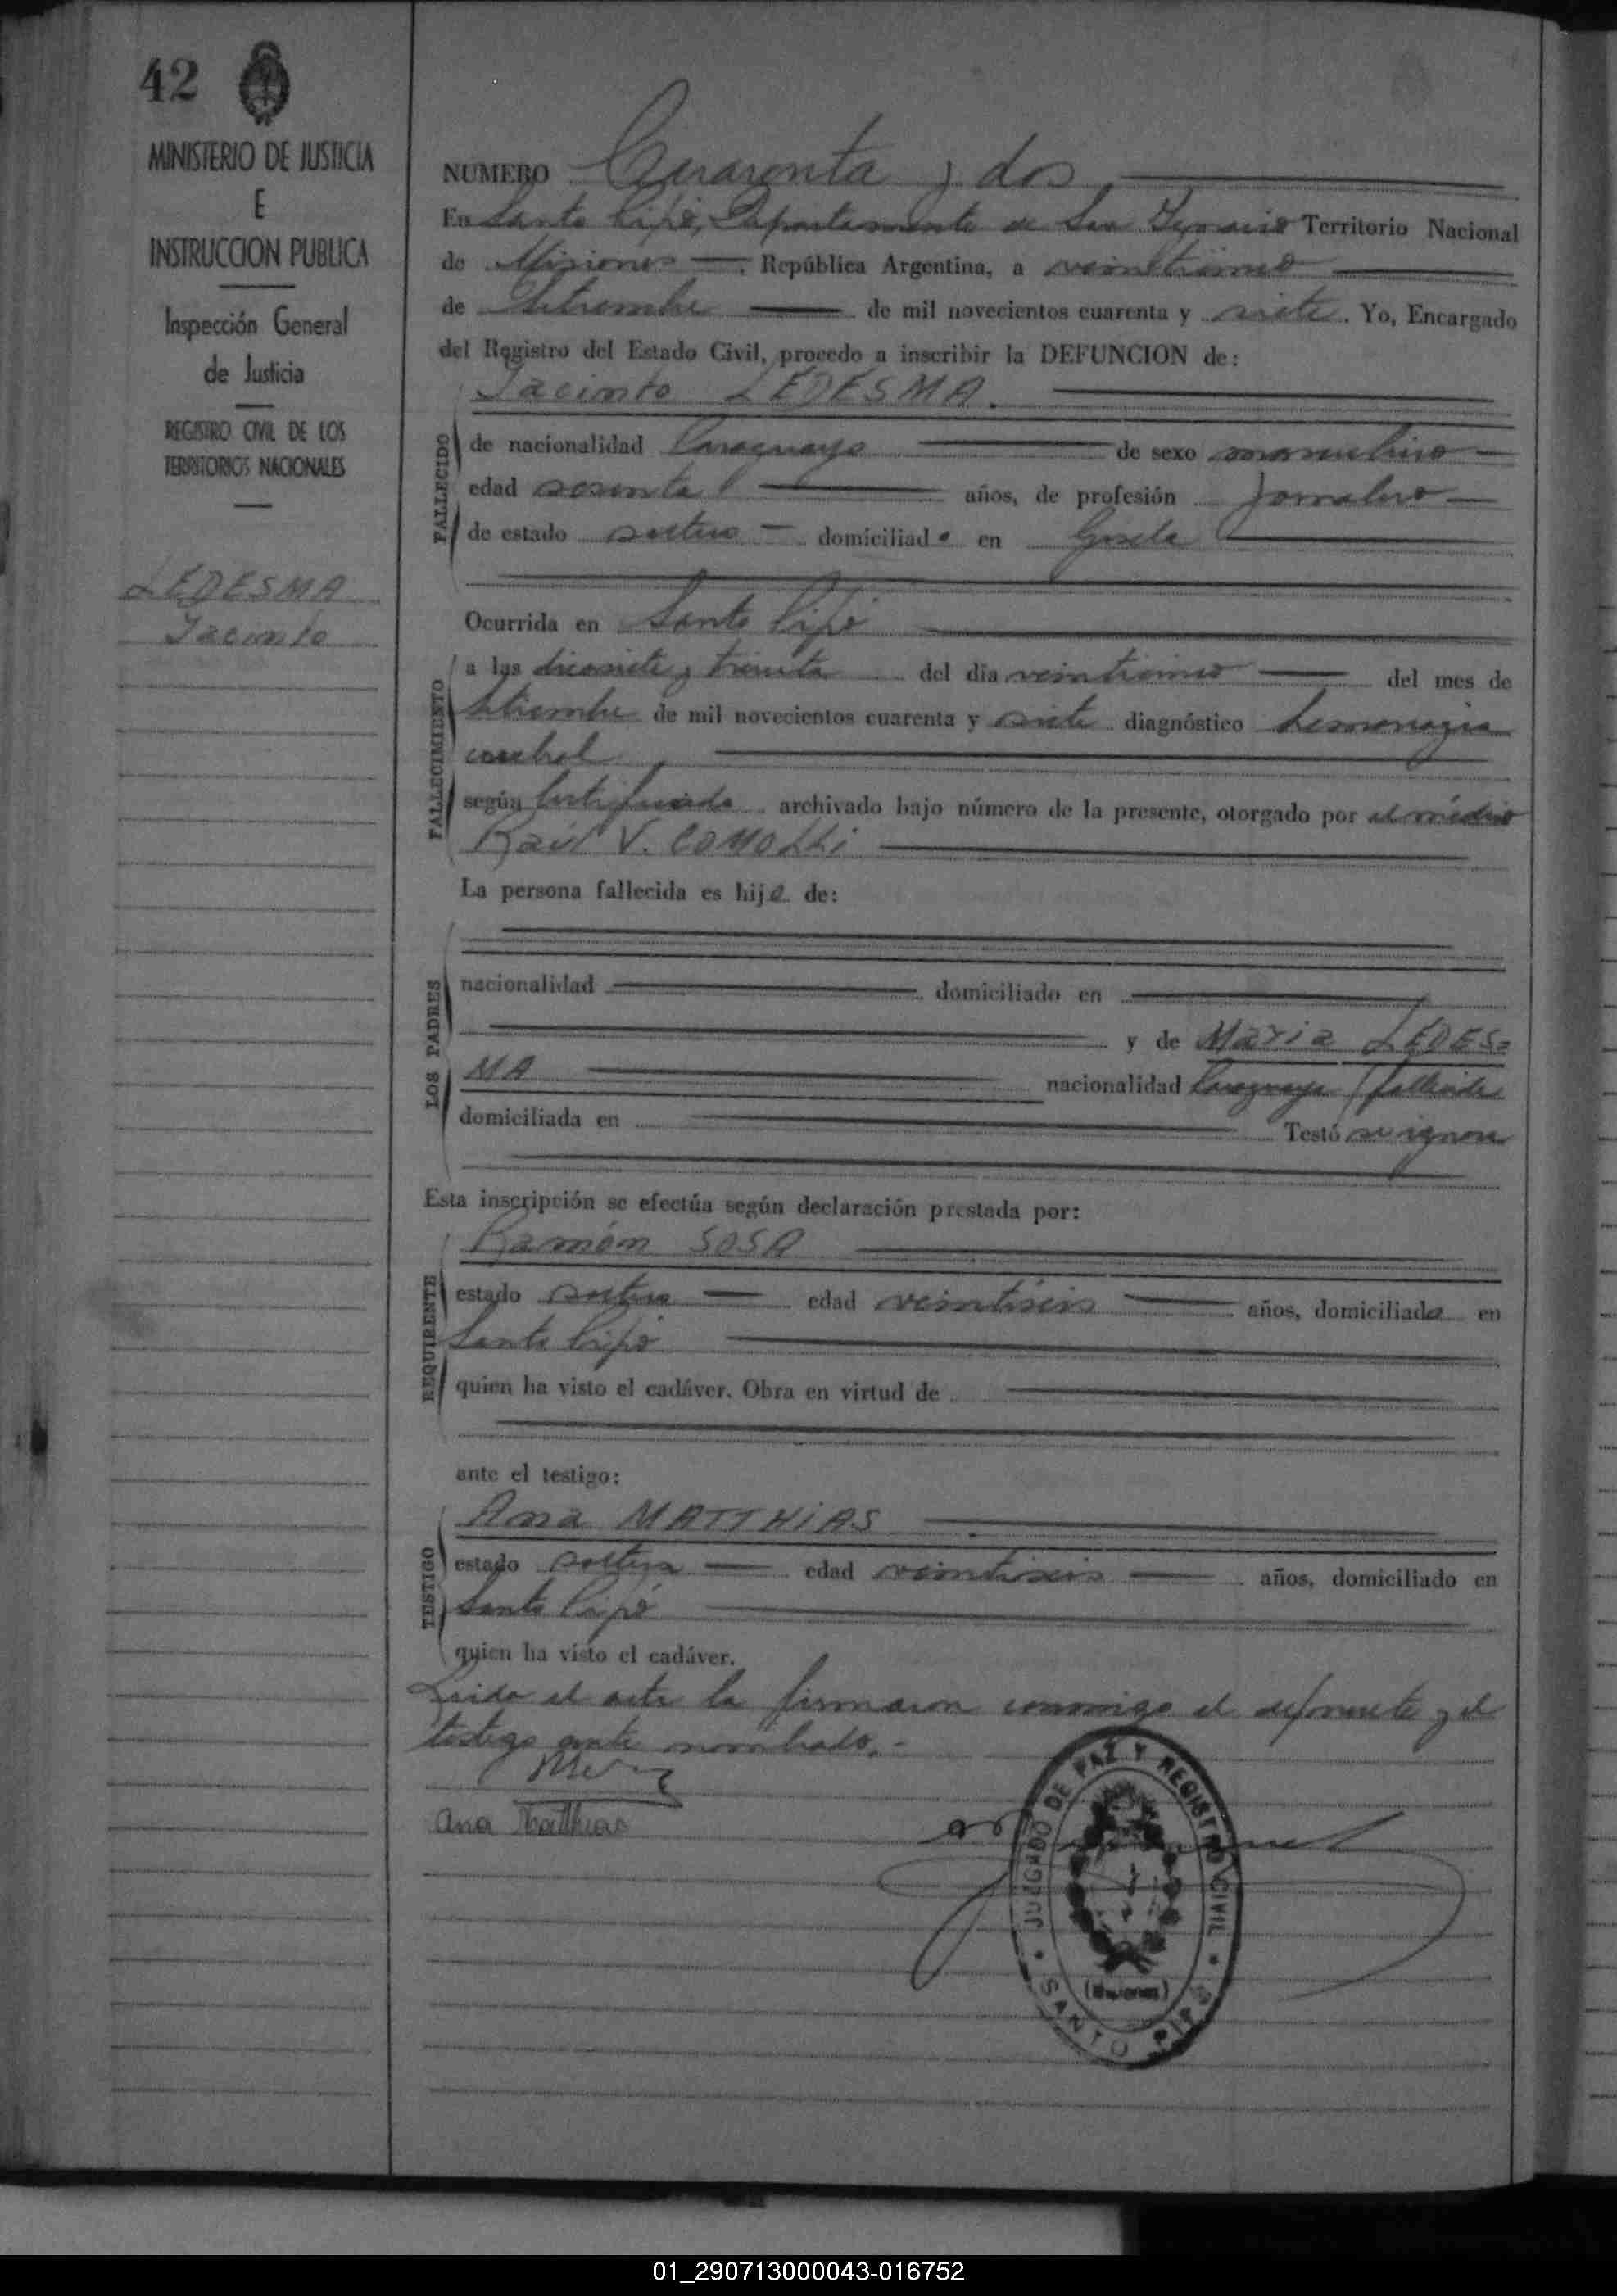 42
MINISTERIO DE JUSTICIA
E
INSTRUCCION PUBLICA
Inspección General
de Justicia
REGISTRO CIVIL DE LOS
TERRITORIOS NACIONALES
LEDESMA
Jacinto
NUMERO Cuarenta y dos
En Santo Pipó, Departamento de San Ignacio Territorio Nacional
de Misiones República Argentina, a veinticinco
de Setiembre de mil novecientos cuarenta y siete. Yo, Encargado
del Registro del Estado Civil, procedo a inscribir la DEFUNCION de:
Jacinto LEDESMA.
FALLECIDO
de nacionalidad Paraguayo de sexo masculino
edad sesenta años, de profesión Jornalero
de estado soltero domiciliado en
Ocurrida en Santo Pipó
FALLECIMIENTO
a las diecisiete y treinta del dia veinticinco del mes de
Setiembre de mil novecientos cuarenta y siete diagnóstico hemorragia
cerebral
según certificado archivado bajo número de la presente, otorgado por el médico
Raúl V. COMOLLI
La persona fallecida es hijo de:
LOS PADRES
nacionalidad domiciliado en
y de Maria LEDES=
MA nacionalidad Paraguaya (fallecida
domiciliada en Testó se ignora
Esta inscripción se efectúa según declaración prestada por:
Ramón SOSA
REQUIRENTE
estado soltero edad veintiseis años, domiciliado en
Santo Pipó
quien ha visto el cadáver. Obra en virtud de
ante el testigo:
Ana MATTHIAS
TESTIGO
estado soltera edad veintiseis años, domiciliado en
Santo Pipó
quien ha visto el cadáver.
Leida el acta la firmaron conmigo el deponente y el
testigo ante nombrado.-
Ana Matthias
JUZGADO DE PAZ Y REGISTRO CIVIL
(Misiones)
SANTO PIPÓ
01_290713000043-016752